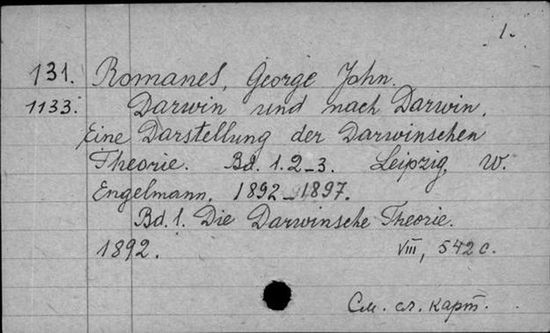 1.
131. Romanes, George John.
1133. Darwin und nach Darwin.
Eine Darstellung der Darwinschen
Theorie. Bd. 1.2-3. Leipzig, W.
Engelmann, 1892-1897.
Bd. 1. Die Darwinsche Theorie.
1892. VIII, 542 с.
См. сл. карт.